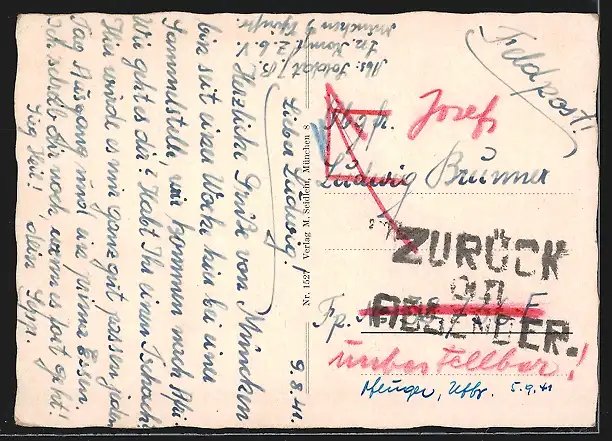 Feldpost!
Abs: Soldat
Inf. Komp. z. b. V.
München
9.8.41.
Lieber Ludwig!
Herzliche Grüße von München
bin seit einer Woche hier bei einer
Sammelstelle, wir kommen nach
Wie geht es dir? Habt Ihr einen Tschoch?
Hier würde es mir ganz gut passen, jeden
Tag Ausgang und ein prima Essen.
Ich schreib Dir noch, wenn es fort geht!
Sieg Heil! dein Sepp.
Nr. 1527 Verlag M. Seidlein, München 8
Josef
Ludwig Brunner
ZURÜCK
an
ABSENDER.
Fp.
unbestellbar!
Uffz. 5.9.41